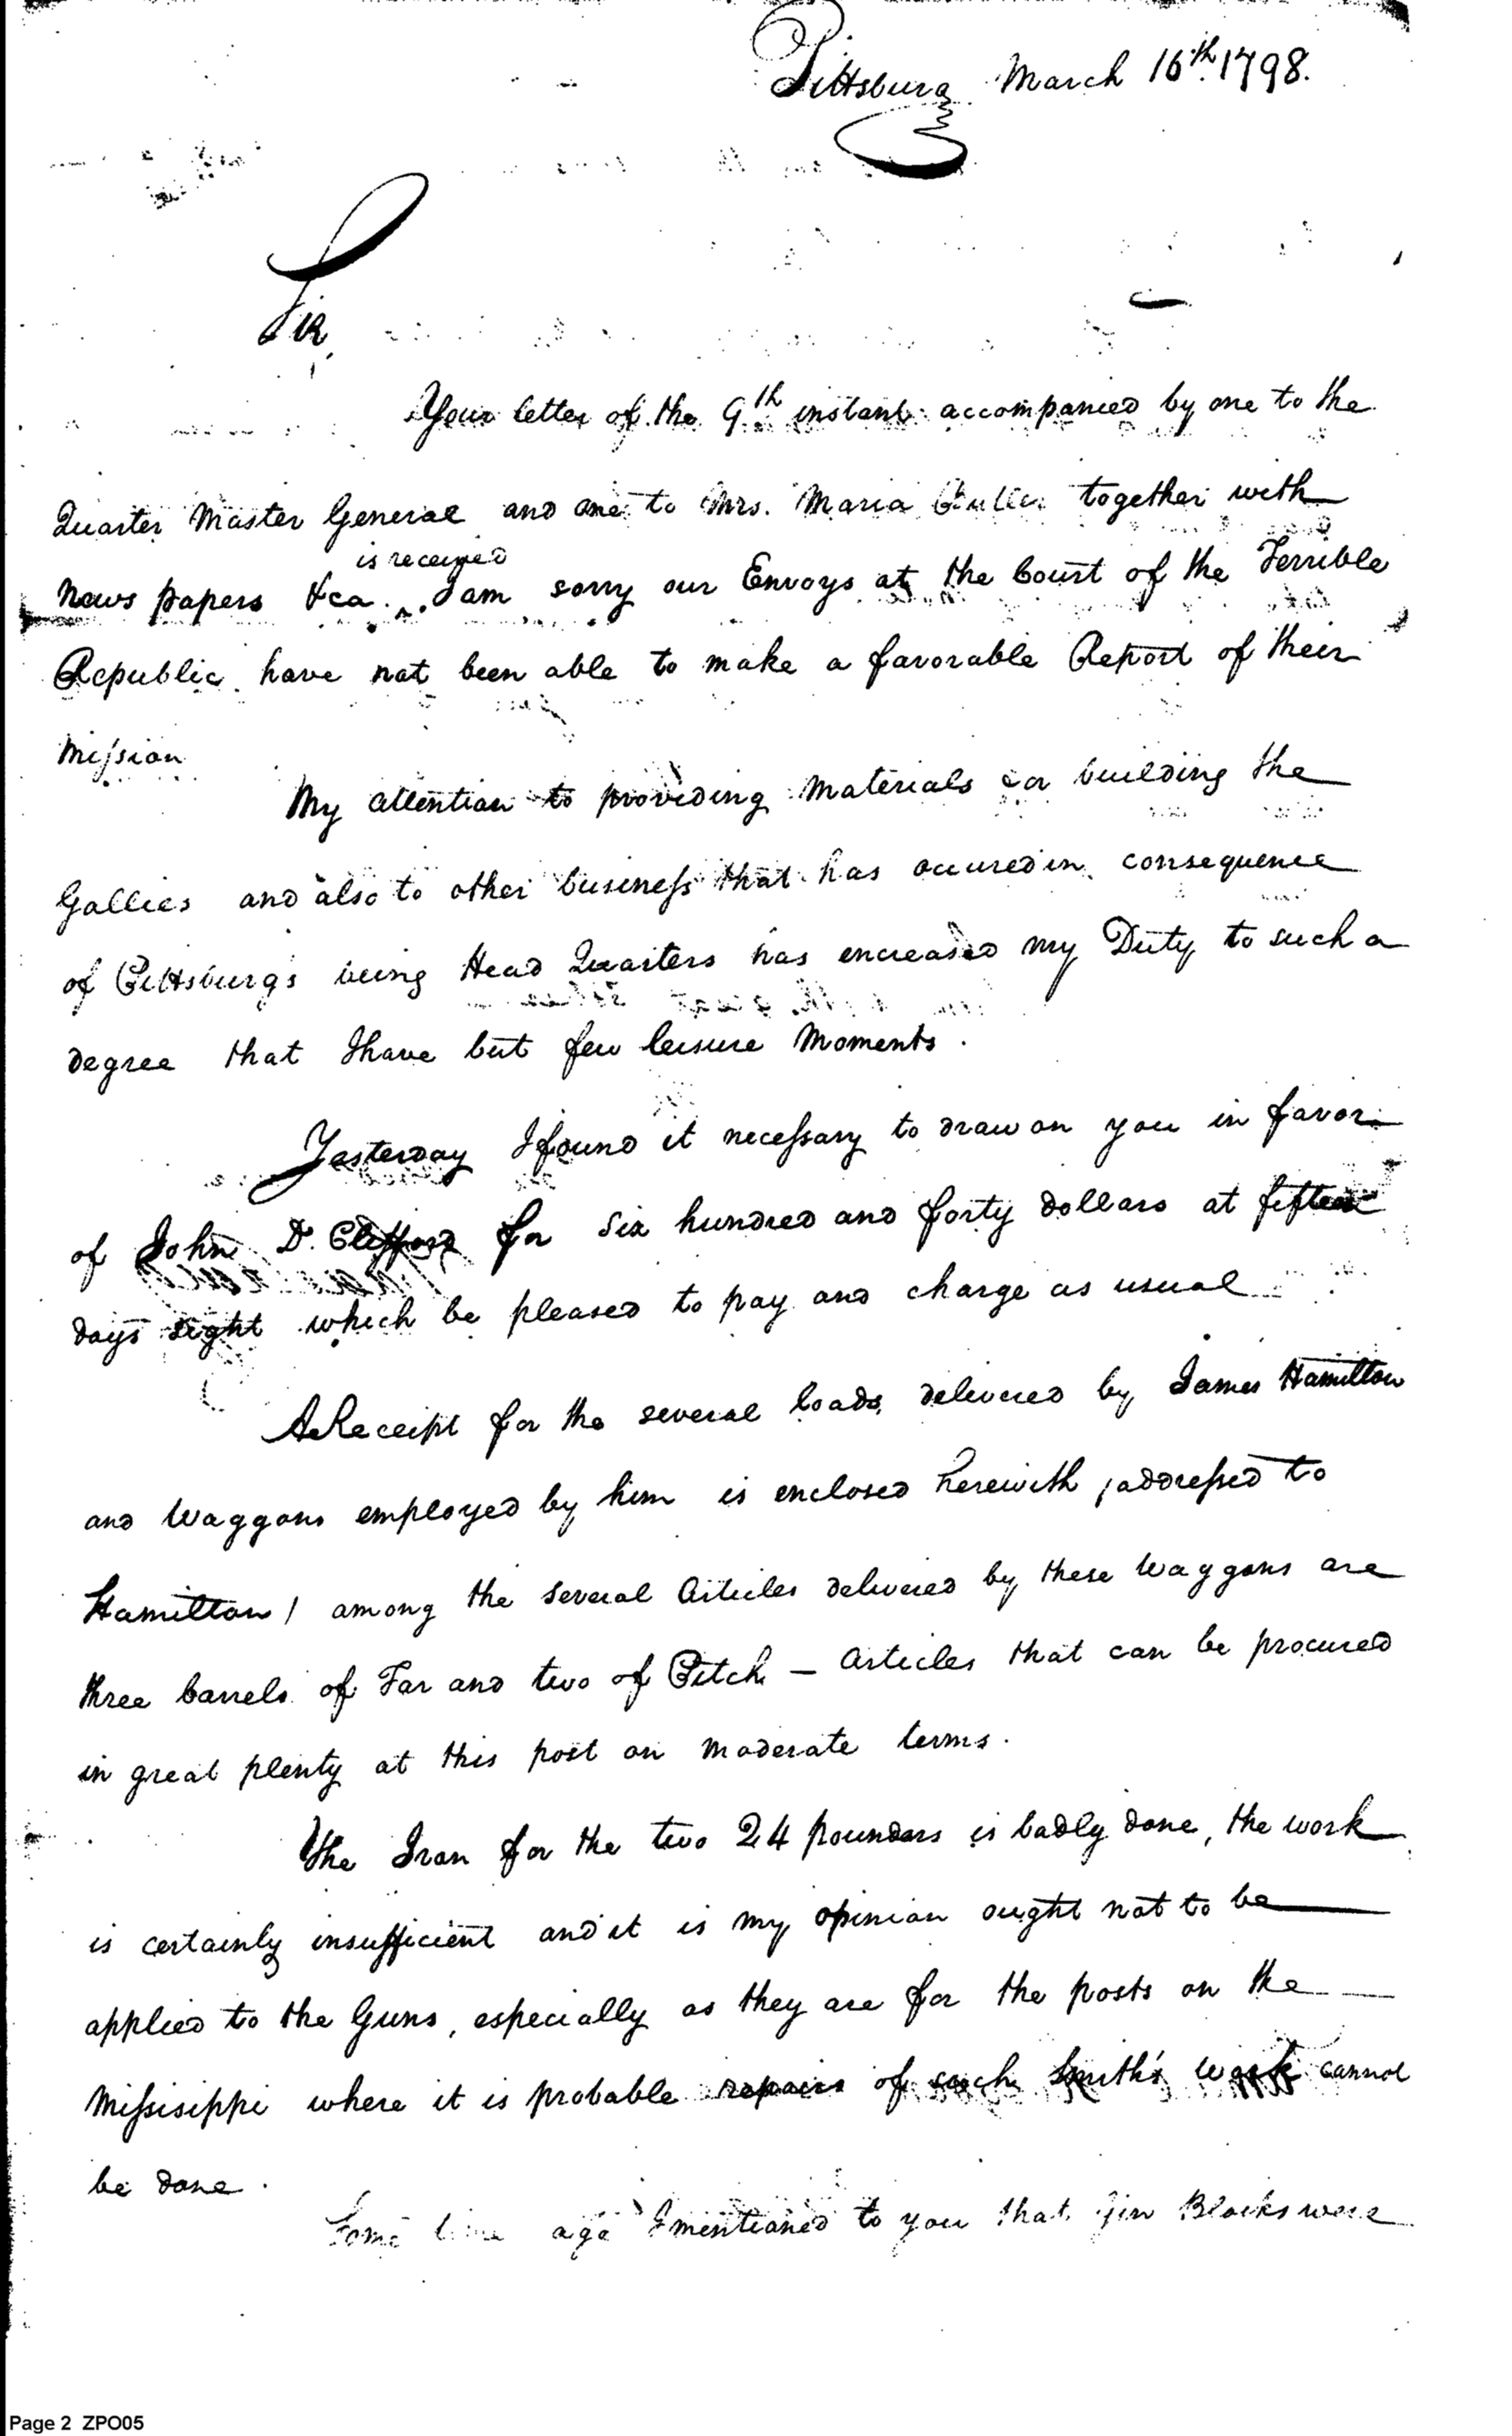 Pittsburg March 16th 1798.
Sir
Your letter of the 9th instant accompanied by one to the
Quarter Master General and one to Mrs. Maria together with
News papers &ca. is received I am sorry our Envoys at the Court of the Terrible
Republic have not been able to make a favorable Report of their
Mission
My attention to providing Materials for building the
Gallies and also to other business that has occured in consequence
of Pittsburgs being Head Quarters has encreased my Duty to such a
degree that I have but few leisure Moments.
Yesterday I found it necessary to draw on you in favor
of John D. Clifford for Six hundred and forty dollars at fifteen
days sight which be pleased to pay and charge as usual
A Receipt for the several loads delivered by James Hamilton
and Waggons employed by him is enclosed herewith /addressed to
Hamilton/ among the several Articles delivered by these Waggons are
three barrels of Tar and two of Pitch — Articles that can be procured
in great plenty at this post on moderate terms.
The Iron for the two 24 pounders is badly done, the work
is certainly insufficient and it is my opinion ought not to be
applied to the Guns, especially as they are for the posts on the
Missisippi where it is probable repairs of such Smith's work cannot
be done.
Some time ago I mentioned to you that Gin Blocks were
Page 2 ZPO05